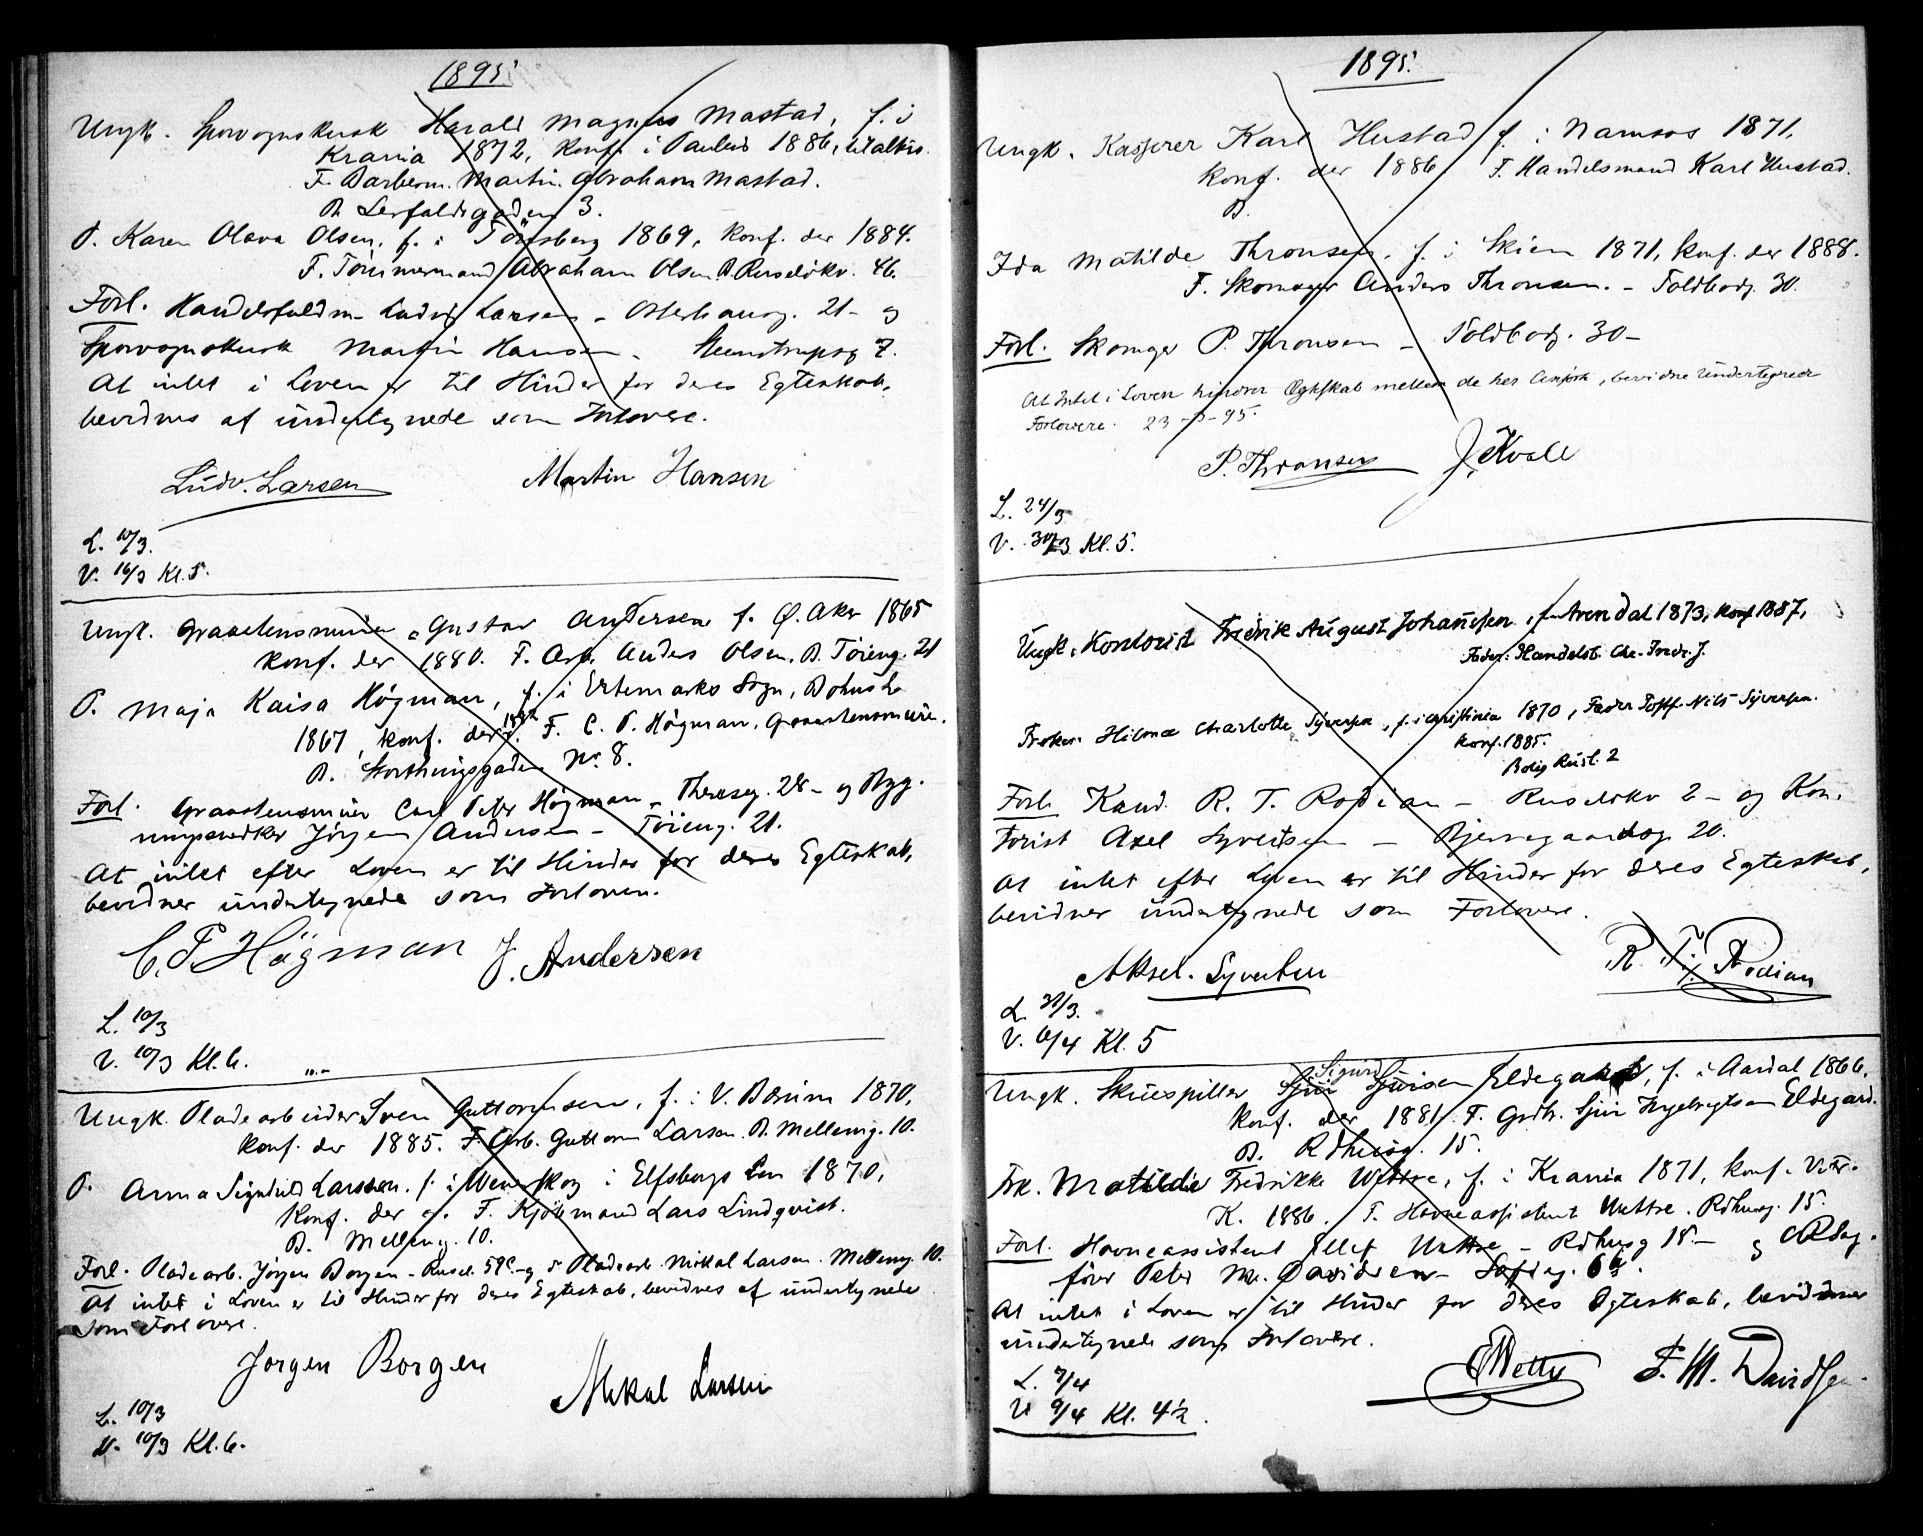 1895.
Ungk. Sporvognskusk Harald Magnus Mastad, f. i
Krania 1872, konf. i Paulus 1886,
F. Barberm. Martin Abraham Mastad.
B. Lerfaldsgaden 3.
P. Karen Olava Olsen, f. i Tönsberg 1869, konf. der 1884.
F. Tömmermand Abraham Olsen B. Ruselökv. 46.
Forl. Handelsfuldm. Ludvig Larsen - Osterhausg. 21 - og
Sporvognskusk Martin Hansen - Steenstrupsg 7.
At intet i Loven er til Hinder for deres Egteskab,
bevidnes af undertegnede som Forlovere.
Ludv. Larsen Martin Hansen
L. 10/3.
V. 16/3 Kl. 5.
Ungk. Graastensmurer Gustav Andersen f. Ø. Aker 1865
konf. der 1880. F. Arb. Anders Olsen. B. Töieng. 21
P. Maja Kaisa Högman, f. i Ertemarks Sogn, Bohusl.
1867, konf. der 1882 F. C. P. Högman, Graastensmurer.
B. Storthingsgaden No. 8.
Forl. Graastensmurer Carl Peter Högman - Thereseg. 28 - og Byg-
ningssnedker Jörgen Andersen - Töieng. 21.
At intet efter Loven er til Hinder for deres Egteskab,
bevidner undertegnede som Forlovere.
C. P. Högman J. Andersen
L. 10/3
V. 10/3 Kl. 6.
Ungk. Pladearbeider Sven Guttormsen, f. i V. Bærum 1870,
konf. der 1885. F. Arb. Guttorm Larsen. B. Melleng. 10.
P. Anna Larsson, f. i i Elfsborgs Len 1870,
konf. der F. Kjöbmand Lars Lindqvist.
B. Melleng. 10.
Forl. Pladearb. Jörgen Borgen - Rusel. 59C - og Pladearb. Mikal Larsen. Melleng. 10.
At intet i Loven er til Hinder for deres Egteskab, bevidnes af undertegnede
som Forlovere.
Jorgen Borgen Mikal Larsen
L. 10/3
V. 10/3 Kl. 6.
1895.
Ungk. Kasserer Karl Hustad f. i Namsos 1871,
konf. der 1886 F. Handelsmand Karl Hustad.
B.
Ida Matilde Thronsen, f. i Skien 1871, konf. der 1888.
F. Skomager Anders Thronsen. - Toldbodg. 30.
Forl. Skomager P. Thronsen - Toldbodg. 30 -
At Intet i Loven hindrer Ægteskab mellem de her Anförte, bevidne Undertegnede
Forlovere. 23-3-95.
P. Thronsen J. Kvale
L. 24/3
V. 30/3 Kl. 5.
Ungk. Kontorist Fredrik August Johannesen, f. Arendal 1873, konf 1887,
Fader: Handelsb. Chr. Fredr. J.
Fröken Hilma Charlotte Syversen, f. i Christiania 1870, Fader Nils Syversen.
konf. 1885.
Bolig Rusl. 2
Forl. Kand. R. T. Rodian - Ruselökv 2 - og Kon-
torist Axel Syvertsen - Bjerregaardsg 20.
At intet efter Loven er til Hinder for deres Egteskab,
bevidner undertegnede som Forlovere.
Aksel Syvertsen R. T. Rodian
L. 31/3.
V. 6/4 Kl. 5
Ungk. Skuespiller Sigurd Sjursen Eldegard, f. i Aardal 1866,
konf. der 1881. F. Grdbr. Sjur Ingebrigtsen Eldegard.
B. Rdhusg. 15.
Frk. Matilde Fredrikke Wettre, f. i Krania 1871, konf. Vor Fr.
K. 1886. F. Havneassistent Wettre. Rdhusg. 15.
Forl. Havneassistent Ellef Wettre - Rdhusg 15 - og
förer Peter M. Davidsen -
At intet i Loven er til Hinder for deres Egteskab, bevidner
undertegnede som Forlovere.
E Wettre P. M. Davidsen
L. 7/4
V 9/4 Kl. 4½.